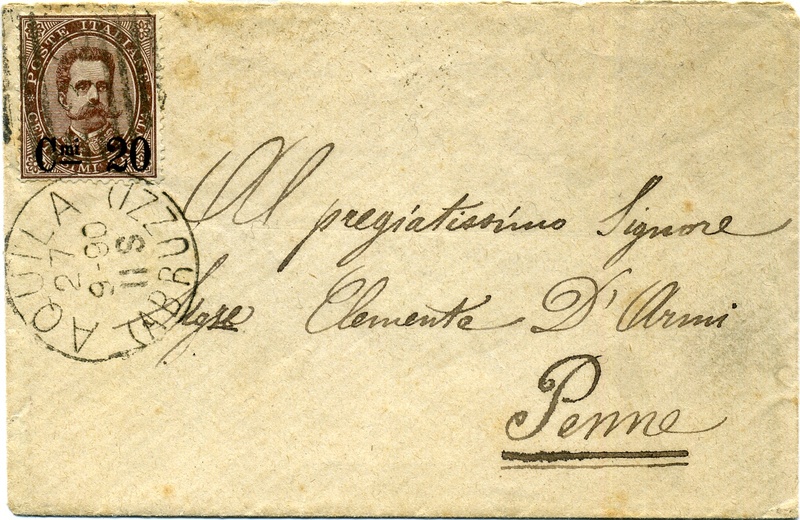 POSTE ITALIANE
Cmi 20
AQUILA (ABRUZZI)
27
9-90
11 S
Al pregiatissimo Signore
Sigre Clemente D'Armi
Penne